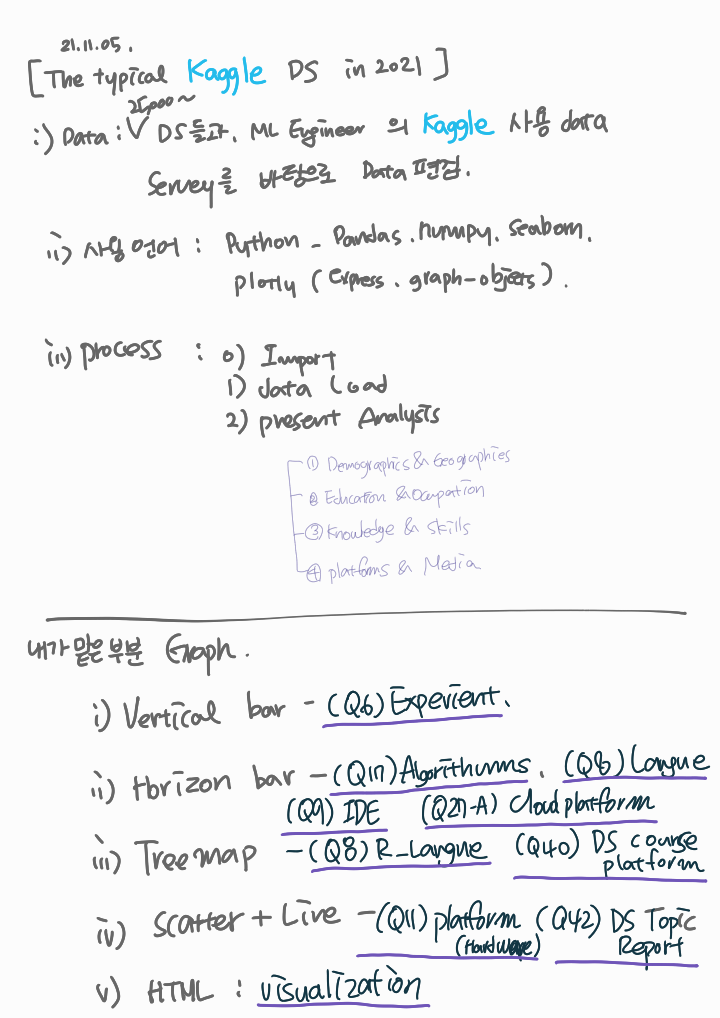 21.11.05.
[The typical Kaggle DS in 2021]
25,000~
i) Data : V DS들과, ML Engineer 의 Kaggle 사용 data
Servey를 바탕으로 Data 편집.
ii) 사용 언어 : Python - Pandas, numpy, seaborn,
plotly (express, graph-objects).
iii) process : 0) Import
1) data Load
2) present Analsts
① Demographics & Geographies
② Education & Ocupation
③ Knowledge & skills
④ platforms & Media
내가 맡은 부분 Graph.
i) Vertical bar - (Q6) Experient.
ii) Horizon bar - (Q17) Algorithms, (Q8) Langue
(Q9) IDE (Q27-A) Cloud platform
iii) Tree map - (Q8) R_Langue (Q40) DS course
platform
iv) Scatter + Live - (Q11) platform (Q42) DS Topic
(Hardware) Report
v) HTML : visualization